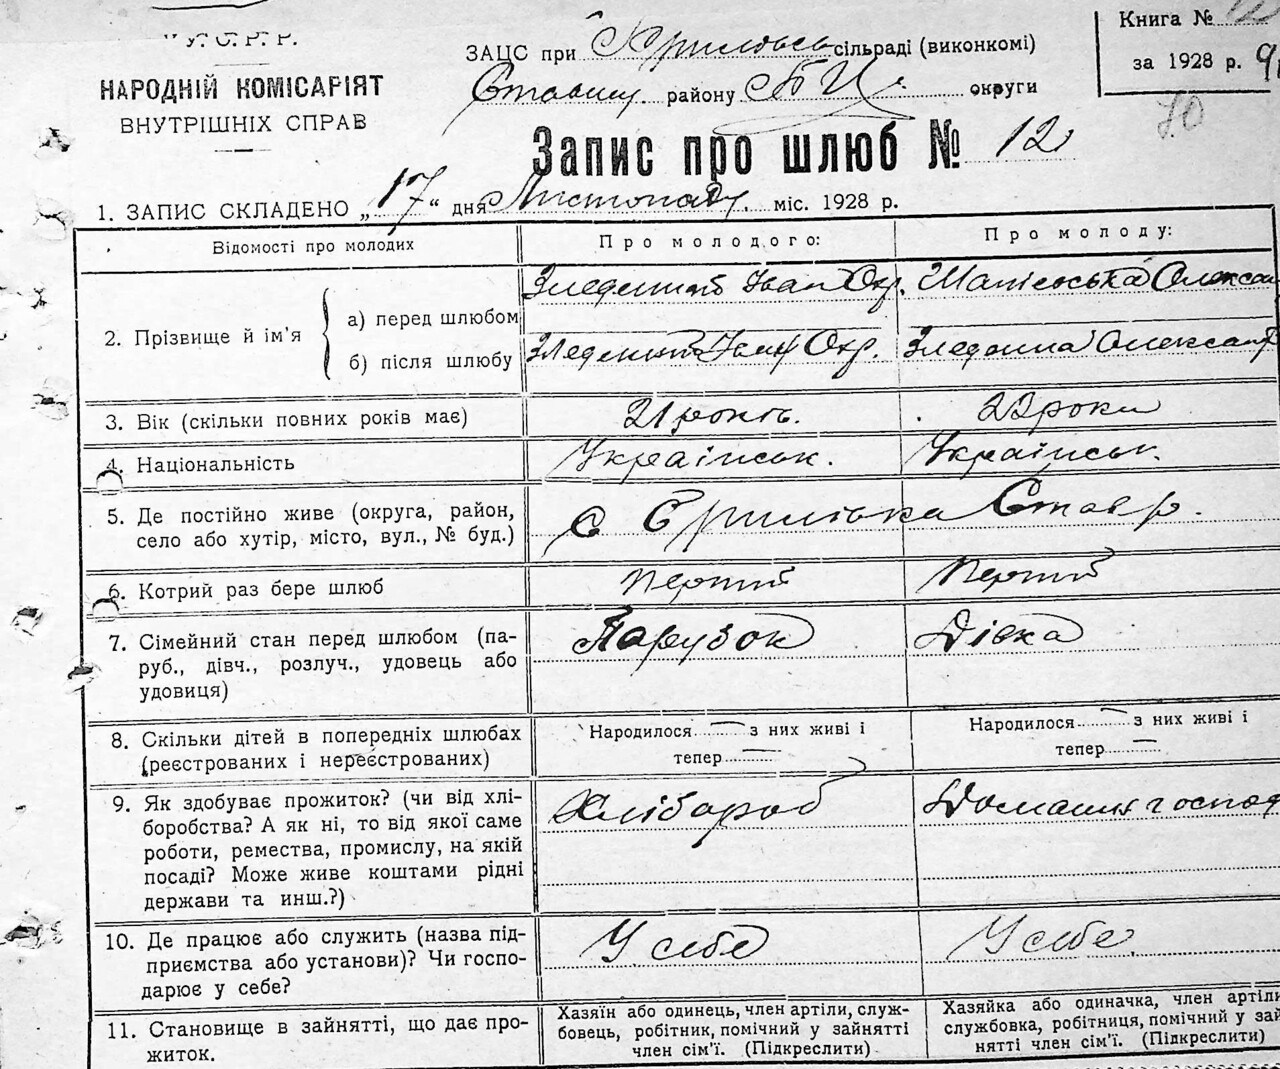 У. С. Р. Р.
НАРОДНІЙ КОМІСАРІЯТ
ВНУТРІШНІХ СПРАВ
ЗАЦС при сільраді (виконкомі)
Ставищ. району Б Ц. округи
Книга №
за 1928 р.
70
Запис про шлюб № 12
1. ЗАПИС СКЛАДЕНО „17“ дня Листопаду міс. 1928 р.
Відомості про молодих
Про молодого:
Про молоду:
2. Прізвище й ім'я
а) перед шлюбом
б) після шлюбу
Іван Охр.
Олексан
Іван Охр.
Олександ
3. Вік (скільки повних років має)
21 років.
22 роки
4. Національність
Українськ.
Українськ.
5. Де постійно живе (округа, район,
село або хутір, місто, вул., № буд.)
с Ставр.
6. Котрий раз бере шлюб
перший
перший
7. Сімейний стан перед шлюбом (па-
руб., дівч., розлуч., удовець або
удовиця)
Парубок
Дівка
8. Скільки дітей в попередніх шлюбах
(реєстрованих і нереєстрованих)
Народилося з них живі і
тепер
Народилося з них живі і
тепер
9. Як здобуває прожиток? (чи від хлі-
боробства? А як ні, то від якої саме
роботи, ремества, промислу, на якій
посаді? Може живе коштами рідні
держави та инш.?)
Хлібороб
Домашня господ
10. Де працює або служить (назва під-
приємства або установи)? Чи госпо-
дарює у себе?
У себе
У себе
11. Становище в зайнятті, що дає про-
житок.
Хазяїн або одинець, член артіли, служ-
бовець, робітник, помічний у зайнятті
член сім'ї. (Підкреслити)
Хазяйка або одиначка, член артіли
службовка, робітниця, помічний у зай
нятті член сім'ї. (Підкреслити)